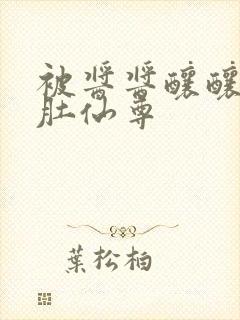 被醬醬釀釀
肚仙尊
葉松柏